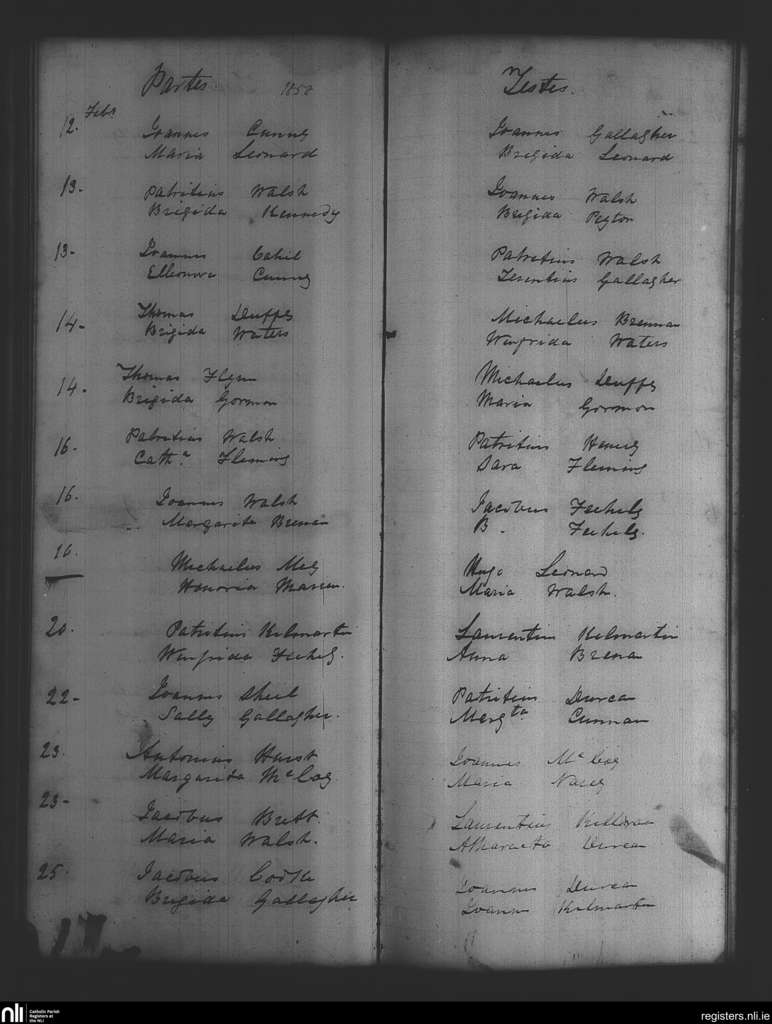 Partes 1858 Testes.
Feb
12. Joannes Cunny Joannes Gallagher
Maria Leonard Brigida Leonard
13. Patritius Walsh Joannes Walsh
Brigida Kennedy Brigida Peyton
13. Joannes Cahil Patritius Walsh
Elleonora Cunny Terentius Gallagher
14. Thomas Duffy Michaelus Brennan
Brigida Waters Winfrida Waters
14. Thomas Flynn Michaelus Duffy
Brigida Gormon Maria Gormon
16. Patritius Walsh Patritius
Cath.a Fleming Sara Fleming
16. Joannes Walsh Jacobus Feehely
Margarita Brenan B. Feehely.
16. Michaelus Hugo Leonard
Honoria Maria Walsh.
20. Patritius Kilmartin Laurentius Kilmartin
Winfrida Feehely. Anna Brenan
22. Joannes Sheil Patritius Durcan
Sally Gallagher. Margta Cunnan
23. Antonius Joannes McCoy
Margarida McCoy Maria
23. Jacobus Brett. Laurentius
Maria Walsh. Durcan
25. Jacobus Cooke Joannes Durcan
Brigida Gallagher Joannes Kilmartin
nli Catholic Parish Registers at the NLI registers.nli.ie